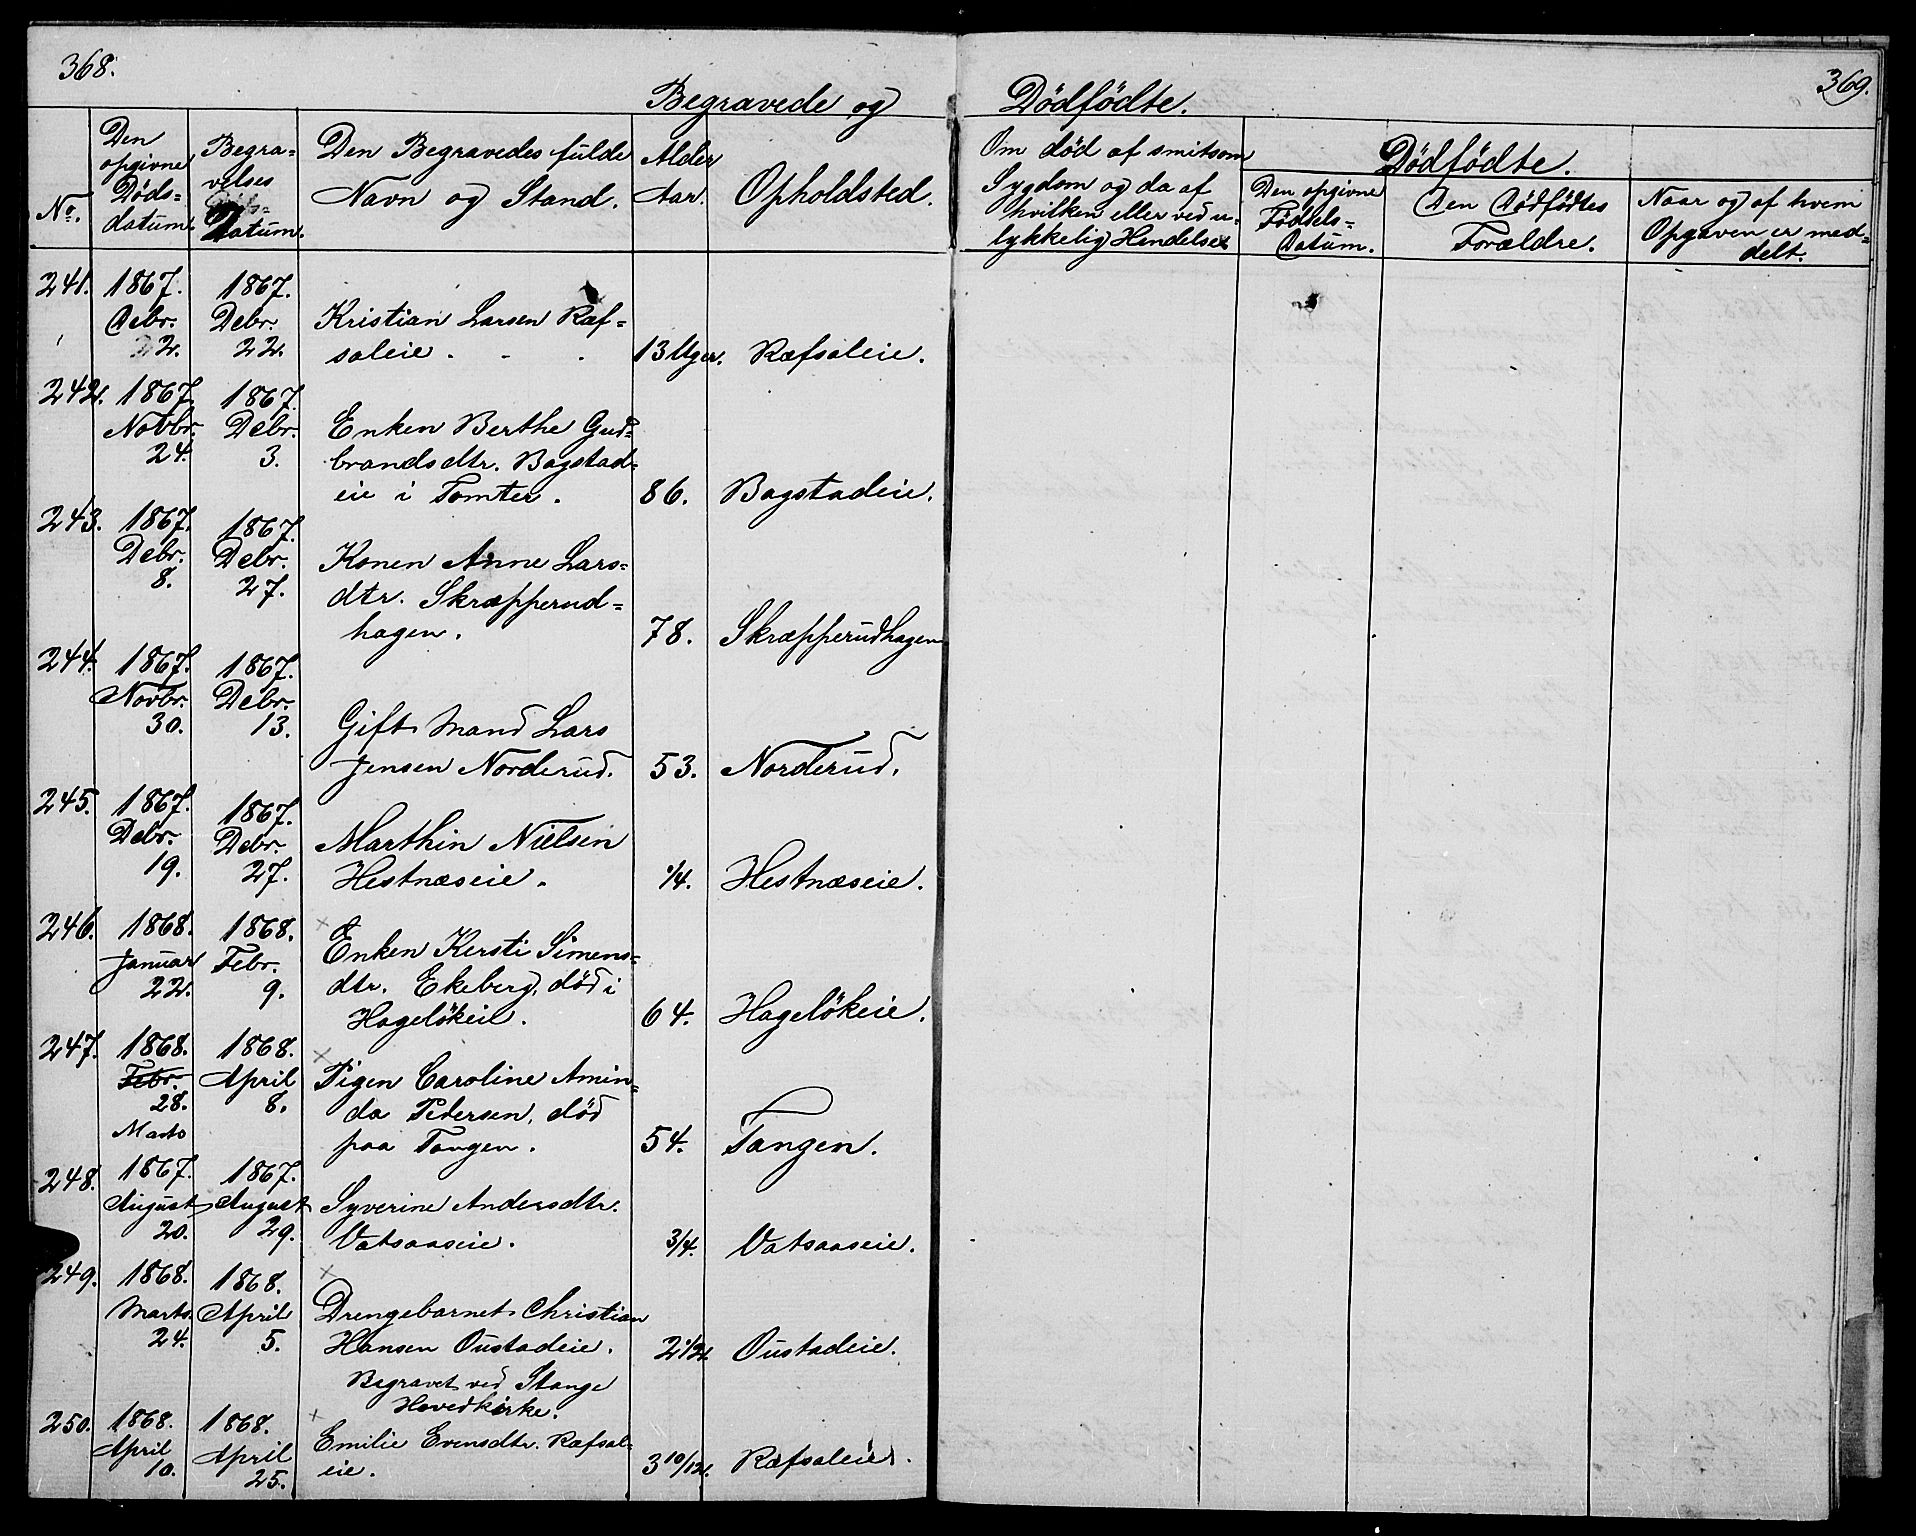 368.
369.
Begravede og Dödfödte.
No.
Den
opgivne
Döds-
datum.
Begra-
velses
Datum.
Den Begravedes fulde
Navn og Stand.
Alder
Aar.
Opholdsted.
Om död af smitsom
Sygdom og da af
hvilken eller ved u-
lykkelig Hendelse
Dödfödte.
Den opgivne
Födsels-
Datum.
Den Dödfödtes
Forældre.
Naar og af hvem
Opgaven er med-
delt.
241. 1867. 1867.
Debr. Debr. Kristian Larsen Ræf-
22. 22. saleie . - . 13 Uger. Ræfsaleie.
242. 1867. 1867.
Novbr. Debr. Enken Berthe Gud-
24. 3. brandsdtr. Bagstad-
eie i Tomter. 86. Bagstadeie.
243. 1867. 1867.
Debr. Debr. Konen Anne Lars-
8. 27. dtr. Skræpperud-
hagen. 78. Skræpperudhagen
244. 1867. 1867.
Novbr. Debr.
30. 13. Gift Mand Lars
Jensen Norderud. 53. Norderud.
245. 1867. 1867.
Debr. Debr. Marthin Nielsen
19. 27. Hestnæseie. 1/4. Hestnæseie.
246. 1868. 1868. ×
Januar Febr. Enken Kersti Simens-
22. 9. dtr. Ekeberg, död i
Hagelökeie. 64. Hagelökeie.
247. 1868. 1868. ×
Febr. April Pigen Caroline Amin-
28. 8. da Pedersen, död
Marts paa Tangen. 54. Tangen.
248. 1867. 1867.
August August Syverine Andersdtr.
20. 29. Vatsaaseie. 3/4. Vatsaaseie.
249. 1868. 1868. ×
Marts. April Drengebarnet Christian
24. 5. Hansen Oustadeie. 2 1/2. Oustadeie.
Begravet ved Stange
Hovedkirke.
250. 1868. 1868. ×
April April Emilie Evensdtr. Ræfsal-
10. 25. eie. 3 10/12. Ræfsaleie.